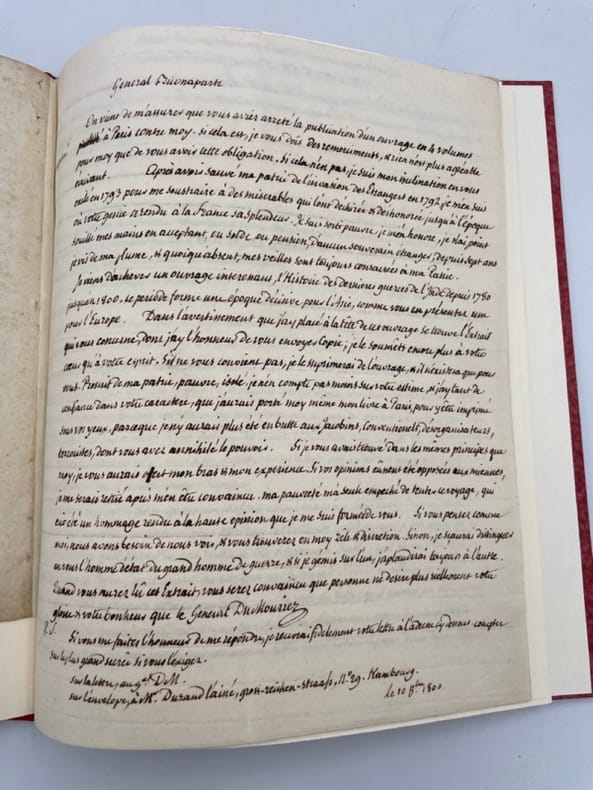 General Buonaparte
On vient de m'assurer que vous aviez arreté la publication d'un ouvrage en 4 volumes
publié à Paris contre moy. si cela est, je vous dois des remerciments, & rien n'est plus agréable
pour moy que de vous avoir cette obligation. Si cela n'est pas, je suis mon inclination en vous
écrivant. Après avoir sauvé ma patrie de l'invasion des Etrangers en 1792, je m'en suis
exilé en 1793 pour me soustraire à des miserables qui l'ont déchirée & deshonorée jusqu'à l'époque
où votre genie a rendu à la France sa splendeur. Je suis resté pauvre, je m'en honore, je n'ai point
souillé mes mains en acceptant, ou solde, ou pension, d'aucun souverain étranger, depuis sept ans
je vis de ma plume, & quoiqu'absent, mes veilles sont toujours consacrées à ma Patrie.
Je viens d'achever un ouvrage interessant, l'Histoire des dernieres guerres de l'Inde depuis 1780
jusqu'en 1800. ce periode forme une époque décisive pour l'Asie, comme vous en présentez une
pour l'Europe. Dans l'avertissement que j'ay placé à la tête de cet ouvrage se trouve l'Extrait
qui vous concerne, dont j'ay l'honneur de vous envoyer copie; je le soumets encore plus à votre
cœur qu'à votre esprit. S'il ne vous convient pas, je le supprimerai de l'ouvrage, & il n'existera que pour
vous. Proscrit de ma patrie, pauvre, isolé, je n'en compte pas moins sur votre estime, & j'ay tant de
confiance dans votre caractere, que j'aurais porté moy même mon livre à Paris, pour y être imprimé
sous vos yeux, parceque je n'y aurais plus été en butte aux Jacobins, conventionels, désorganisateurs,
terroristes, dont vous avez annihilé le pouvoir. Si je vous avais trouvé dans les mêmes principes que
moy, je vous aurais offert mon bras & mon experience. Si vos opinions eussent été opposées aux miennes,
je me serais retiré après m'en être convaincu. ma pauvreté m'a seule empeché de tenter ce voyage, qui
eut été un hommage rendu à la haute opinion que je me suis formée de vous. Si vous pensez comme
moi, nous avons besoin de nous voir, & vous trouverez en moy zele & discretion. Sinon, je saurai distinguer
en vous l'homme d'état du grand homme de guerre, & si je gémis sur l'un, j'aplaudirai toujours à l'autre.
Quand vous aurez lû cet Extrait, vous serez convaincu que personne ne desire plus réellement votre
gloire & votre bonheur que le General DuMouriez
P.S.
Si vous me faites l'honneur de me répondre, je recevrai fidelement votre lettre à l'adresse cy dessous. comptez
sur le plus grand secret si vous l'exigez.
sur la lettre, au gal D.M.
sur l'envelope, à Mr. Durand l'ainé, gross-reichen-straass, No. 29. Hambourg.
le 10 8bre 1800